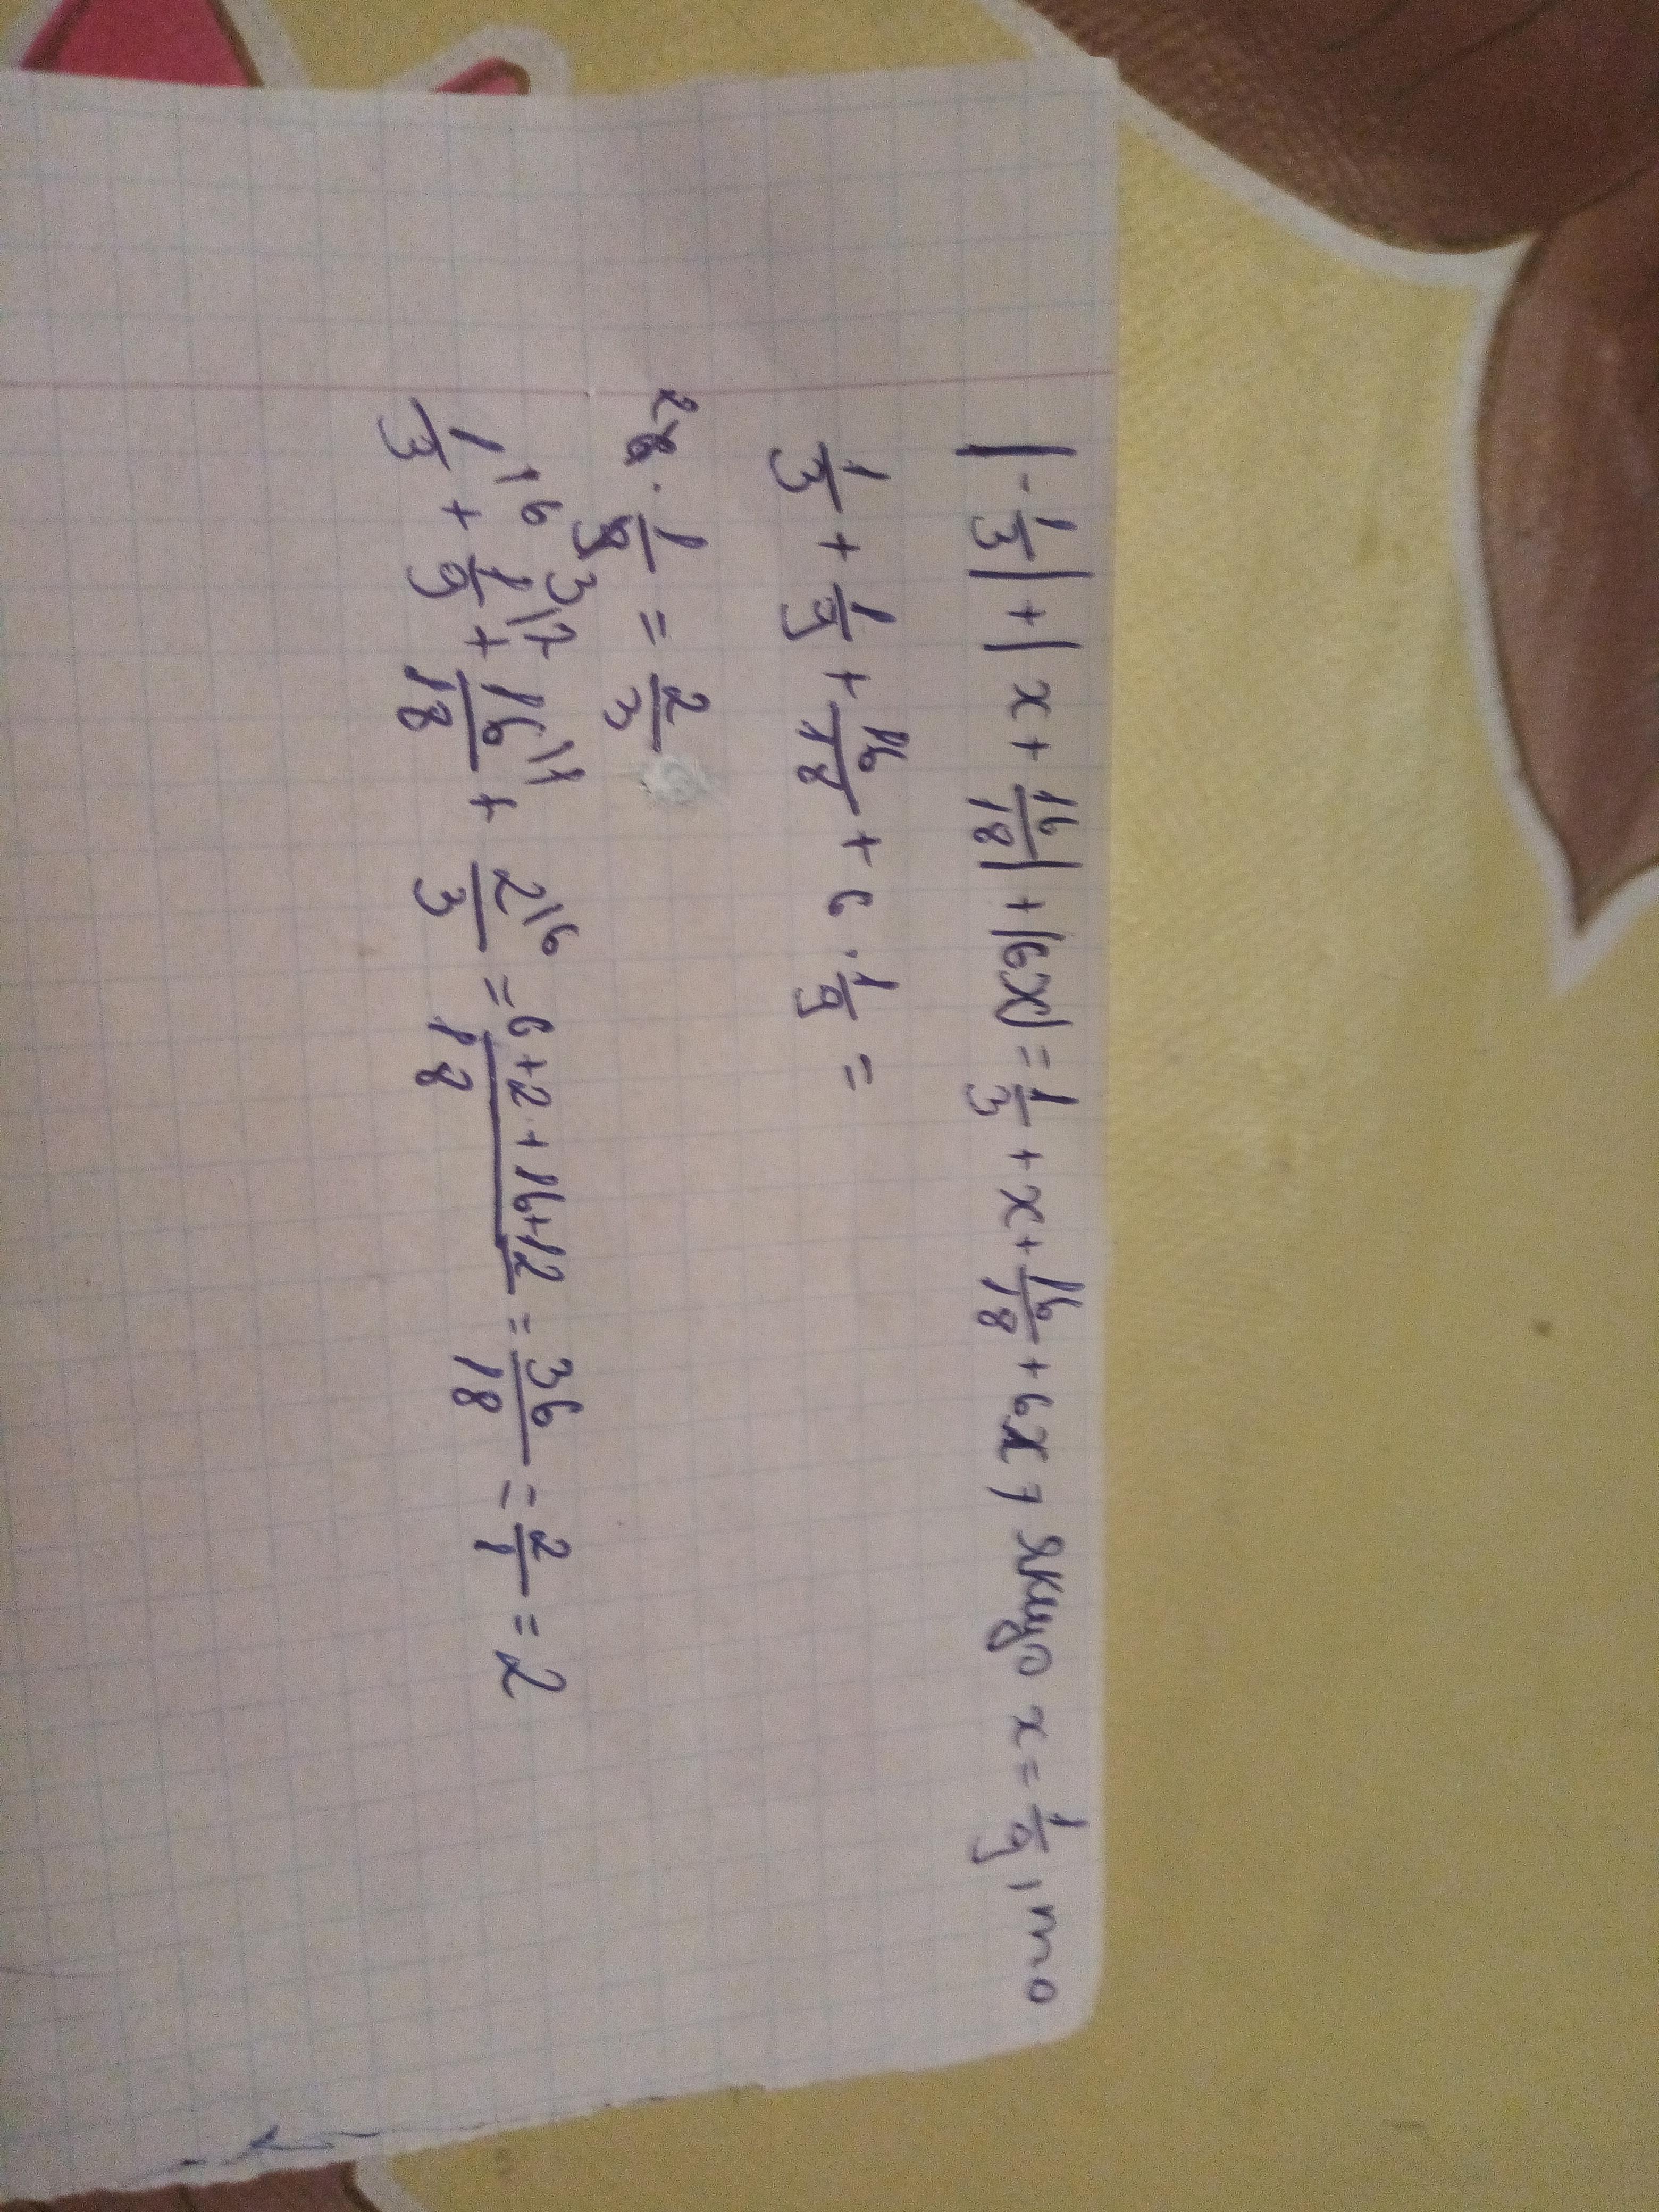 |-1/3| + |x + 16/18| + |6x| = 1/3 + x + 16/18 + 6x, якщо x = 1/9, то
1/3 + 1/9 + 16/18 + 6 · 1/9 =
2 6 · 1/9 3 = 2/3
1/3 \6 + 1/9 \2 + 16/18 \1 + 2/3 \6 = 6+2+16+12/18 = 36/18 = 2/1 = 2